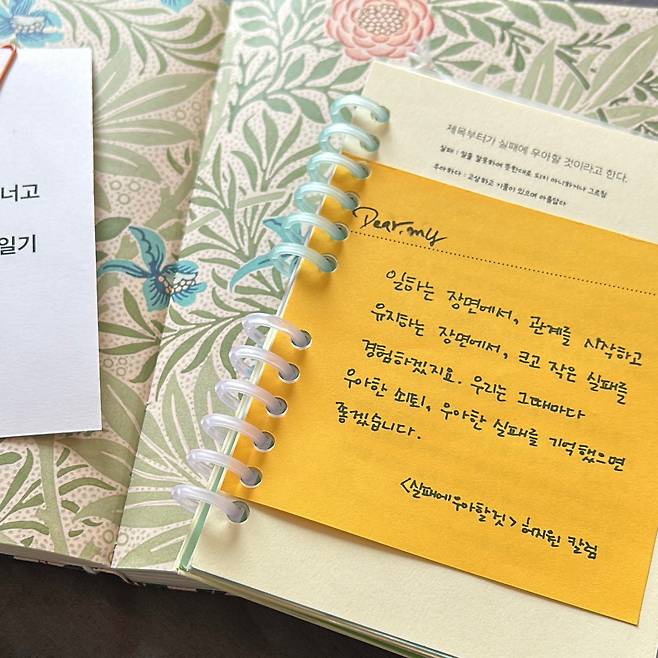 너고
일기
제목부터가 실패에 우아할 것이라고 한다.
실패 : 일을 잘못하여 뜻한대로 되지 아니하거나 그르침
우아하다 : 고상하고 기품이 있으며 아름답다
Dear. my
일하는 장면에서, 관계를 시작하고
유지하는 장면에서, 크고 작은 실패를
경험하겠지요. 우리는 그때마다
우아한 쇠퇴, 우아한 실패를 기억했으면
좋겠습니다.
<실패에우아할것> 허지원 칼럼